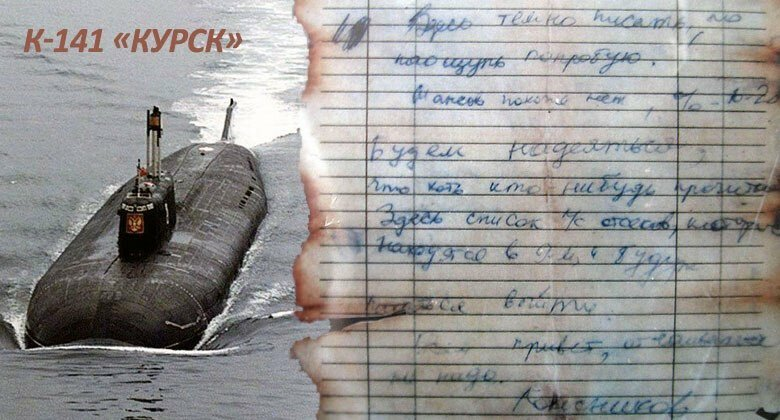 К-141 «КУРСК»
Здесь темно писать, но
наощупь попробую.
Шансов похоже нет, % - 10-20
Будем надеяться,
что хоть кто нибудь прочита
Здесь список л/с отсеков, которые
находятся в 9-м и будут
выйти.
привет, отчаиваться
не надо.
Колесников